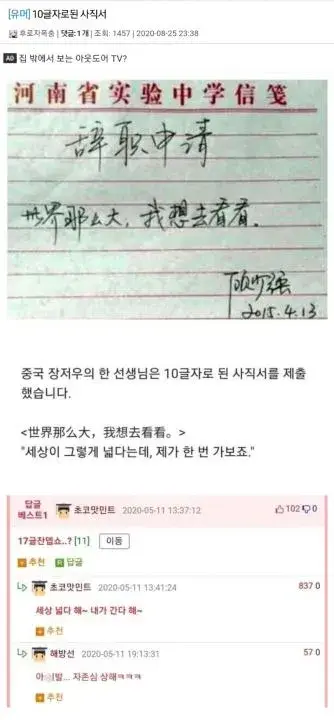 [유머] 10글자로된 사직서
후로자폭송 | 댓글: 1 개 | 조회: 1457 | 2020-08-25 23:38
AD 집 밖에서 보는 아웃도어 TV?
河南省实验中学信笺
辞职申请
世界那么大，我想去看看.
顾少强
2015.4.13
중국 장저우의 한 선생님은 10글자로 된 사직서를 제출
했습니다.
<世界那么大，我想去看看。>
"세상이 그렇게 넓다는데, 제가 한 번 가보죠."
답글
베스트1
초코맛민트 2020-05-11 13:37:12
102 0
17글잔뎁쇼..? [11] 이동
추천 R 답글
초코맛민트 2020-05-11 13:41:24
837 0
세상 넓다 해~ 내가 간다 해~
추천
해방선 2020-05-11 19:13:31
57 0
발... 자존심 상해ㅋㅋㅋ
추천